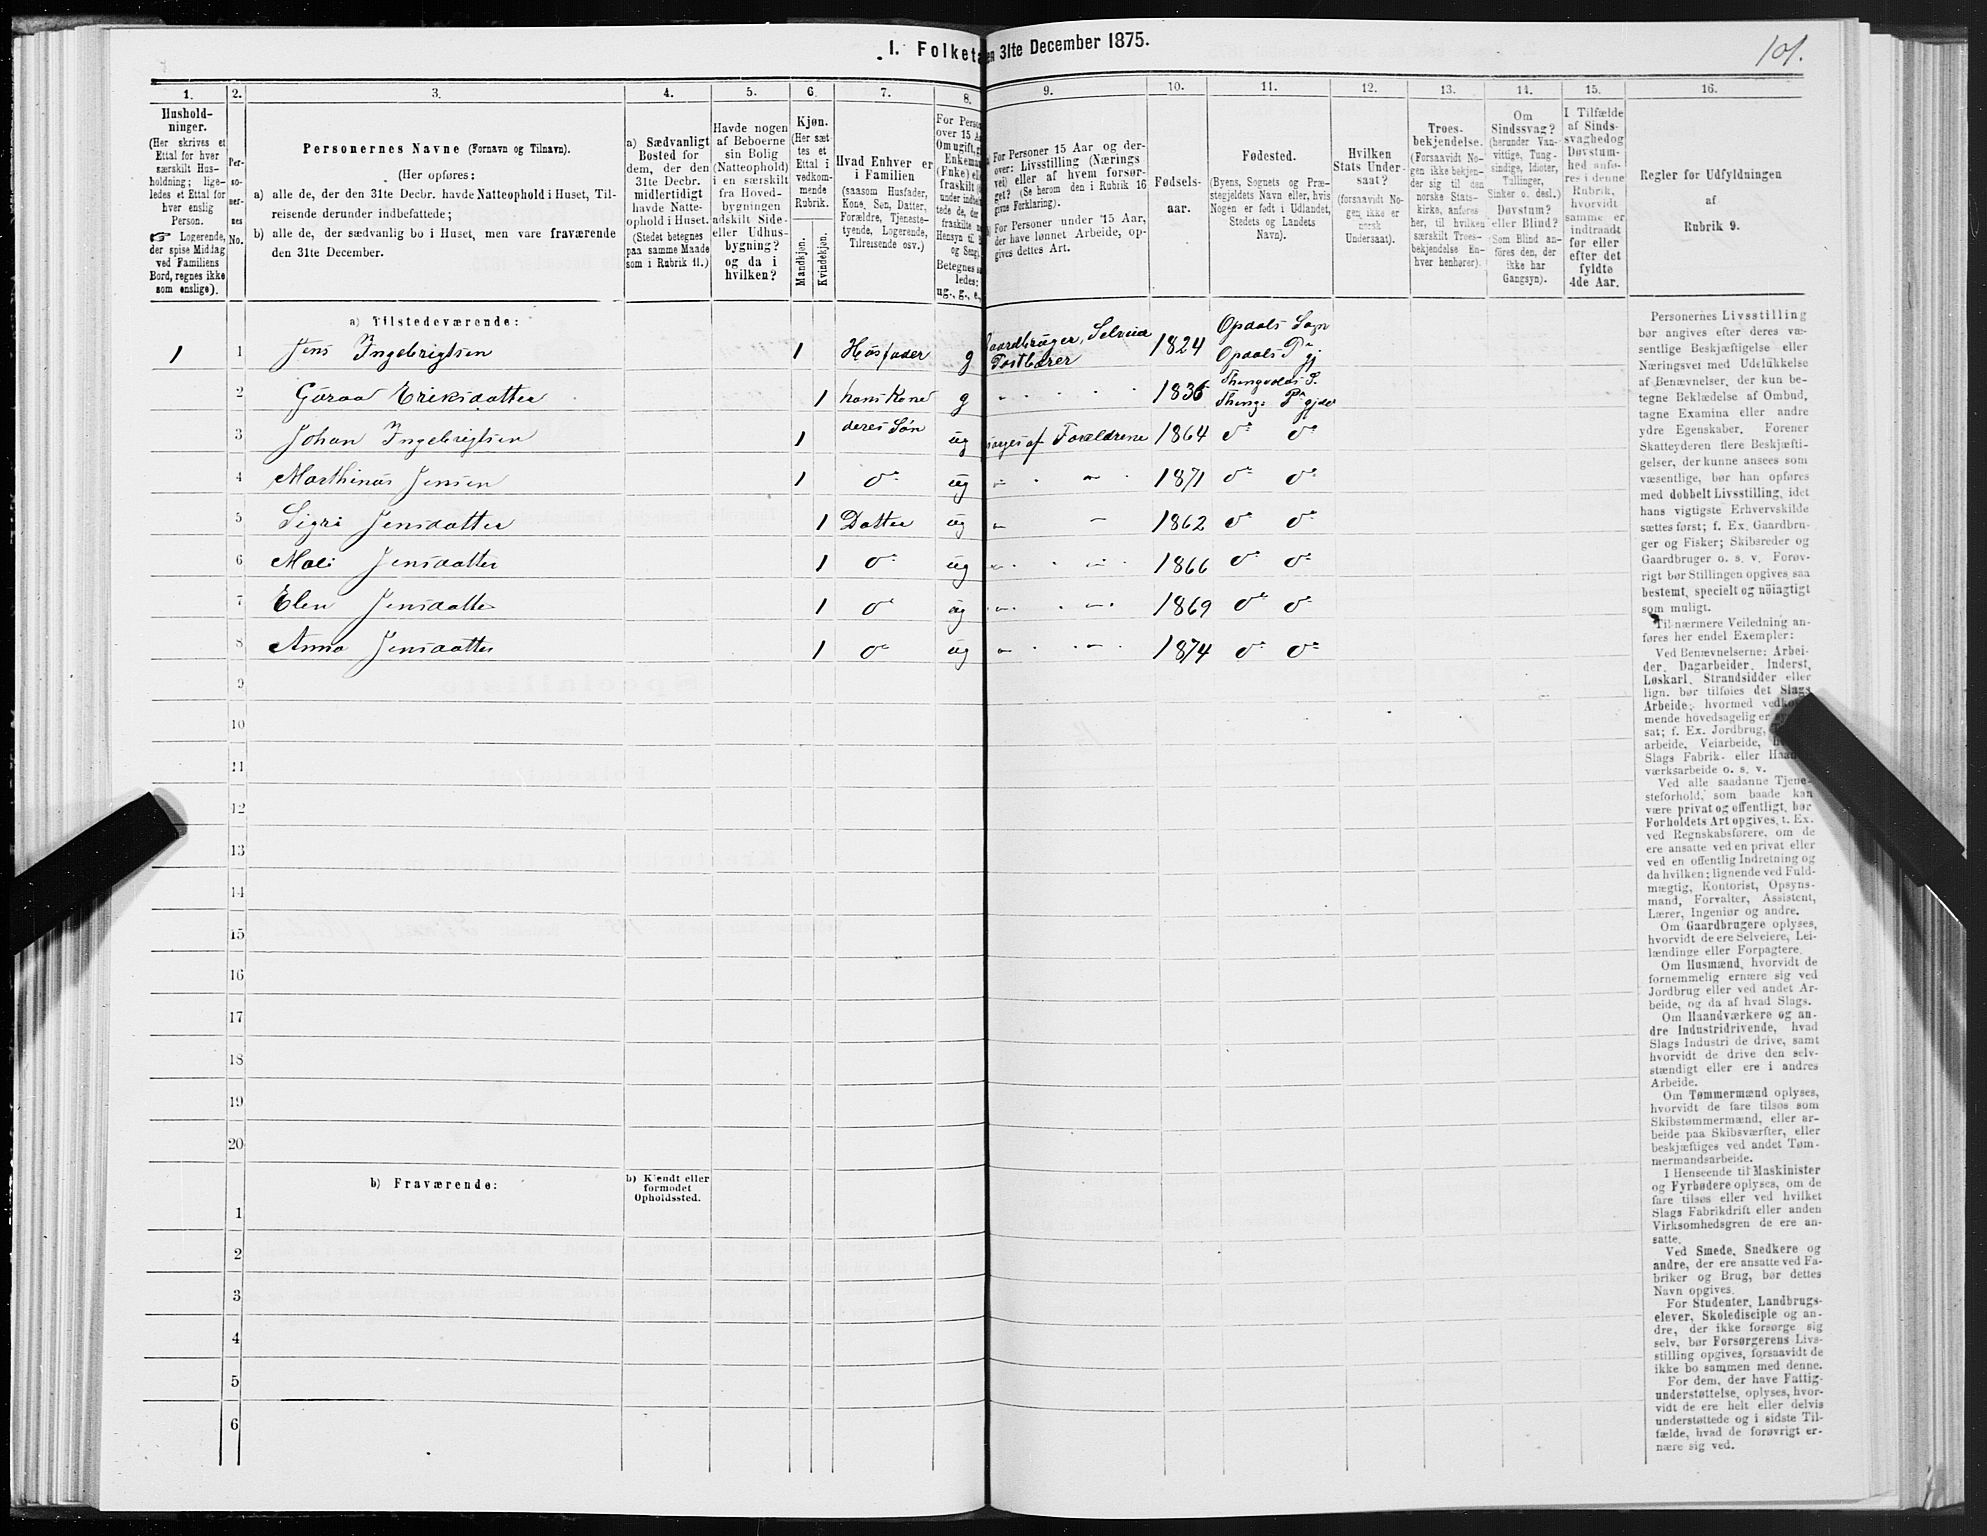 101.
I. Folketa en 31te December 1875.
1.
2.
3.
4.
5.
6.
7.
8.
9.
10.
11.
12.
13.
14.
15.
16.
Hushold-
ninger.
(Her skrives et
Ettal for hver
særskilt Hus-
holdning; lige-
ledes et Ettal for
hver enslig
Person.
☞ Logerende,
der spise Middag
ved Familiens
Bord, regnes ikke
som enslige).
Per-
so-
ner-
nes
No.
Personernes Navne (Fornavn og Tilnavn).
(Her opføres:
a) alle de, der den 31te Decbr. havde Natteophold i Huset, Til-
reisende derunder indbefattede;
b) alle de, der sædvanlig bo i Huset, men vare fraværende
den 31te December.
a) Sædvanligt
Bosted for
dem, der den
31te Decbr.
midlertidigt
havde Natte-
ophold i Huset.
(Stedet betegnes
paa samme Maade
som i Rubrik 11.)
Havde nogen
af Beboerne
sin Bolig
(Natteophold)
i en særskilt
fra Hoved-
bygningen
adskilt Side-
eller Udhus-
bygning?
og da i
hvilken?
Kjøn.
(Her sæt-
tes et
Ettal i
vedkom-
mende
Rubrik.
Mandkjøn.
Kvindekjøn.
Hvad Enhver er
i Familien
(saasom Husfader,
Kone, Søn, Datter,
Forældre, Tjeneste-
tyende, Logerende,
Tilreisende osv.)
For Perso
over 15 A
Om ugift, g
Enkema
(Fnke) ell
fraskilt
under indbe
tede de, der
fraskilte
Hensyn til B
og Seng).
Betegnes s
ledes:
ug., g., e.,
For Personer 15 Aar og der-
over: Livsstilling (Nærings
vei) eller af hvem forsør-
get? (Se herom den i Rubrik 16
givne Forklaring).
For Personer under 15 Aar,
der have lønnet Arbeide, op-
gives dettes Art.
Fødsels-
aar.
Fødested.
(Byens, Sognets og Præ-
stegjeldets Navn eller, hvis
Nogen er født i Udlandet,
Stedets og Landets
Navn).
Hvilken
Stats Under-
saat?
(forsaavidt No-
gen ikke er
norsk
Undersaat).
Troes-
bekjendelse.
(Forsaavidt No-
gen ikke bekjen-
der sig til den
norske Stats-
kirke, anføres
her, til hvilken
særskilt Troes-
bekjendelse En-
hver henhører).
Om
Sindssvag?
(herunder Van-
vittige, Tung-
sindige, Idioter,
Tullinger,
Sinker o. desl.)
Døvstum?
eller Blind?
(Som Blind an-
føres den, der
ikke har
Gangsyn).
I Tilfælde
af Sinds-
svaghed og
Døvstum-
hed anfø-
res i denne
Rubrik,
hvorvidt
samme er
indtraadt
før eller
efter det
fyldte
4de Aar.
Regler for Udfyldningen
af
Rubrik 9.
a) Tilstedeværende:
1 1 Jens Ingebrigtsen 1 Husfader g Gaardbruger, Selveier Postbærer 1824 Opdals Sogn Opdals Pr gj
2 Guroa Eriksdatter 1 hans Kone g " 1836 Thingvolds S. Thing: Pr gjde
3 Johan Ingebrigtsen 1 deres Søn ug sørges af Forældrene 1864 do do
4 Marthinus Jensen 1 do ug " " 1871 do do
5 Sigri Jensdatter 1 Datter ug " " 1862 do do
6 Mali Jensdatter 1 do ug " " 1866 do do
7 Elen Jensdatter 1 do ug " " 1869 do do
8 Anna Jensdatter 1 do ug " " 1874 do do
9
10
11
12
13
14
15
16
17
18
19
20
b) Fraværende:
b) Kjendt eller
formodet
Opholdssted.
1
2
3
4
5
6
Personernes Livsstilling
bør angives efter deres væ-
sentlige Beskjæftigelse eller
Næringsvei med Udelukkelse
af Benævnelser, der kun be-
tegne Beklædelse af Ombud,
tagne Examina eller andre
ydre Egenskaber. Forener
Skatteyderen flere Beskjæfti-
gelser, der kunne ansees som
væsentlige, bør han opføres
med dobbelt Livsstilling, idet
hans vigtigste Erhvervskilde
sættes først; f. Ex. Gaardbru-
ger og Fisker; Skibsreder og
Gaardbruger o. s. v. Forøv-
rigt bør Stillingen opgives saa
bestemt, specielt og nöiagtigt
som muligt.
Til nærmere Veiledning an-
føres her endel Exempler:
Ved Benævnelserne: Arbei-
der, Dagarbeider, Inderst,
Løskarl, Strandsidder eller
lign. bør tilføies det Slags
Arbeide, hvormed vedko
mende hovedsagelig er
sat; f. Ex. Jordbrug,
arbeide, Veiarbeide,
Slags Fabrik- eller Haand
værksarbeide o. s. v.
Ved alle saadanne Tjene-
steforhold, som baade kan
være privat og offentligt, bør
Forholdets Art opgives, t. Ex.
ved Regnskabsførere, om de
ere ansatte ved en privat eller
ved en offentlig Indretning og
da hvilken; lignende ved Fuld-
mægtig, Kontorist, Opsyns-
mand, Forvalter, Assistent,
Lærer, Ingeniør og andre.
Om Gaardbrugere oplyses,
hvorvidt de ere Selveiere, Lei-
lændinge eller Forpagtere.
Om Husmænd, hvorvidt de
fornemmelig ernære sig ved
Jordbrug eller ved andet Ar-
beide, og da af hvad Slags.
Om Haandværkere og an-
dre Industridrivende, hvad
Slags Industri de drive, samt
hvorvidt de drive den selv-
stændigt eller ere i andres
Arbeide.
Om Tømmermænd oplyses,
hvorvidt de fare tilsøs som
Skibstømmermænd, eller ar-
beide paa Skibsværfter, eller
beskjæftiges ved andet Tøm-
mermandsarbeide.
I Henseende til Maskinister
og Fyrbødere oplyses, om de
fare tilsøs eller ved hvilket
Slags Fabrikdrift eller anden
Virksomhedsgren de ere an-
satte.
Ved Smede, Snedkere og
andre, der ere ansatte ved Fa-
briker og Brug, bør dettes
Navn opgives.
For Studenter, Landbrugs-
elever, Skoledisciple og an-
dre, der ikke forsørge sig
selv, bør Forsørgerens Livs-
stilling opgives, forsaavidt de
ikke bo sammen med denne.
For dem, der have Fattig-
understøttelse, oplyses, hvor-
vidt de ere helt eller delvis
understøttede og i sidste Til-
fælde, hvad de forøvrigt er-
nære sig ved.